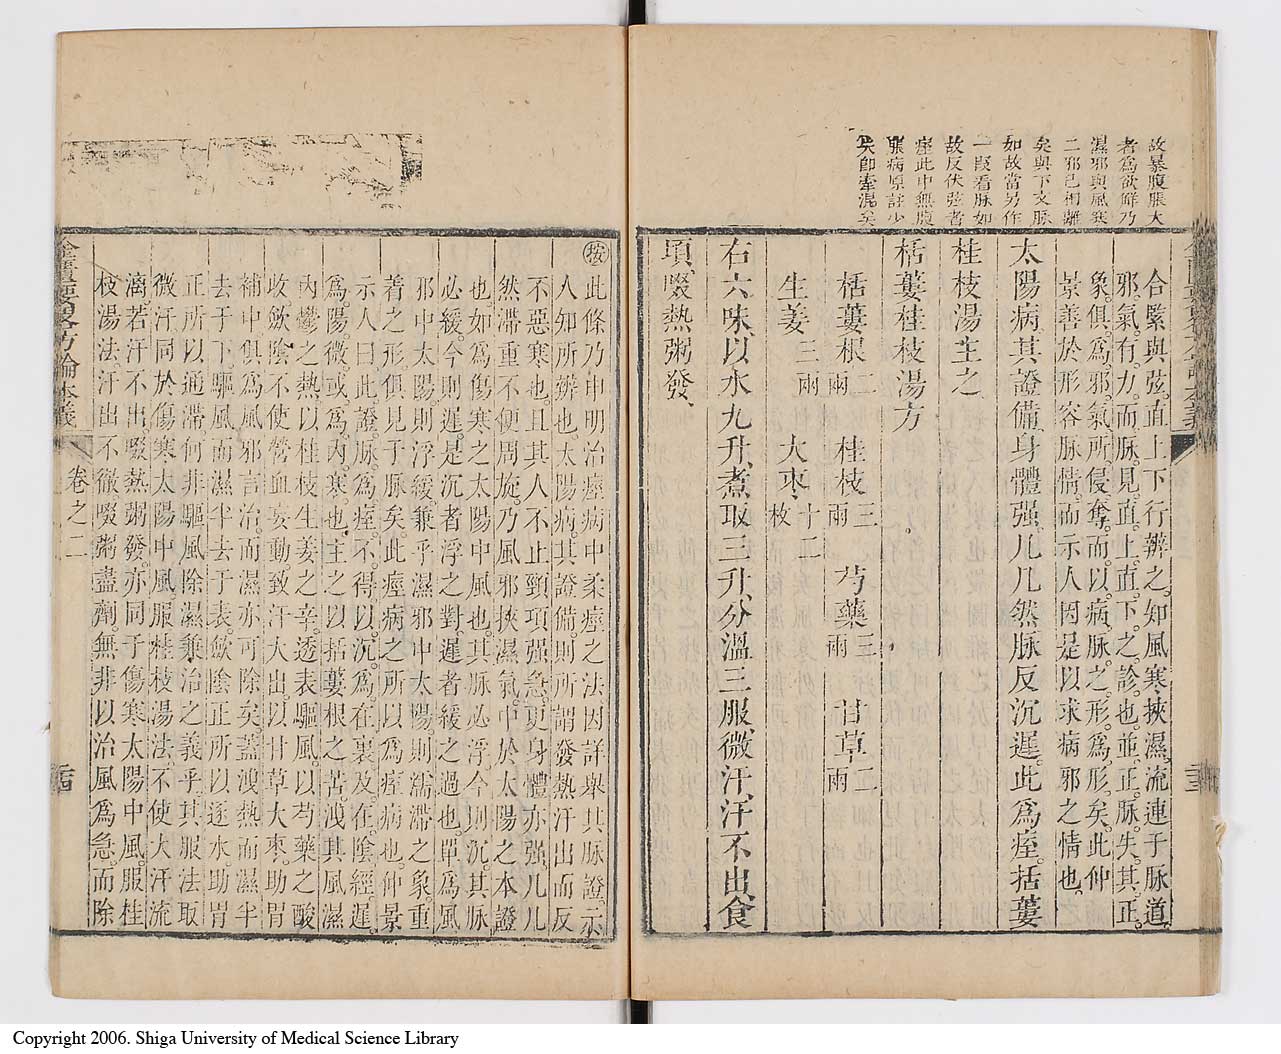 故暴腹脹大
者爲欲鮮乃
濕邪與風寒
二邪已相離
矣與下文脉
如故當另作
一段看脉如
故反伏弦者
痓此中無腹
脹病原註少
夾卽牽混矣
合緊與弦。直上下行辨之。知風寒挾濕。流連于脉道。
邪氣有力。而脉見直上直下之診也。並正脉失其正
象。俱爲邪氣所侵奪。而以病脉之形爲形矣。此仲
景善於形容脉情。而示人因是以求病邪之情也。
太陽病。其證備。身體强。几几然。脉反沉遲。此爲痓。括蔞
桂枝湯主之
栝蔞桂枝湯方
栝蔞根二兩 桂枝三兩 芍藥三兩 甘草二兩
生姜三兩 大棗十二枚
右六味、以水九升、煮取三升、分溫三服、微汗、汗不出、食
頃、啜熱粥發、
二十三
按此條乃申明治痓病中柔痓之法。因詳舉其脉證。示
人知所辨也。太陽病。其證備。則所謂發熱汗出而反
不惡寒也。且其人不止頸項强急。更身體亦强。几几
然滯重不便周旋。乃風邪挾濕氣。中於太陽之本證
也。如爲傷寒之太陽中風也。其脉必浮。今則沉。其脉
必緩。今則遲。是沉者浮之對。遲者緩之過也。單爲風
邪中太陽。則浮緩。兼乎濕邪中太陽。則濡滯之象。重
著之形俱見于脉矣。此痓病之所以爲痓病也。仲景
示人曰此證脉。爲痓。不得以沉。爲在裏及在陰經。遲。
爲陽微。或爲內寒也。主之以括蔞根之苦。洩其風濕
內鬱之熱。以桂枝生姜之辛。透表驅風。以芍藥之酸
收斂陰不使營血妄動。致汗大出。以甘草大棗。助胃
補中。俱爲風邪言治。而濕亦可除矣。蓋洩熱而濕半
去于下。驅風而濕半去于表。斂陰正所以逐水。助胃
正所以通滯。何非驅風除濕兼治之義乎。其服法取
微汗。同於傷寒太陽中風。服桂枝湯法。不使大汗流
漓。若汗不出。啜熱粥發。亦同于傷寒太陽中風。服桂
枝湯法。汗出不徹。啜粥盡劑。無非以治風爲急。而除
金匱要畧方論本義
卷之二
二十四
Copyright 2006. Shiga University of Medical Science Library